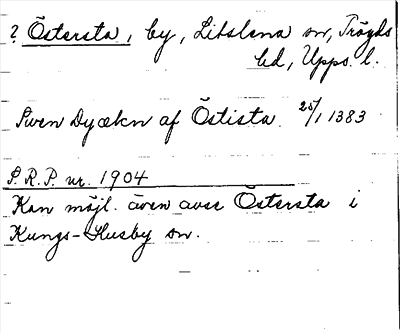 ? Östersta, by, Litslena sn, Trögds
hd, Upps. l.
Swen Dyækn af Östista 25/1 1383
S.R.P. nr. 1904
Kan möjl. även avse Östersta i
Kungs-Husby sn.